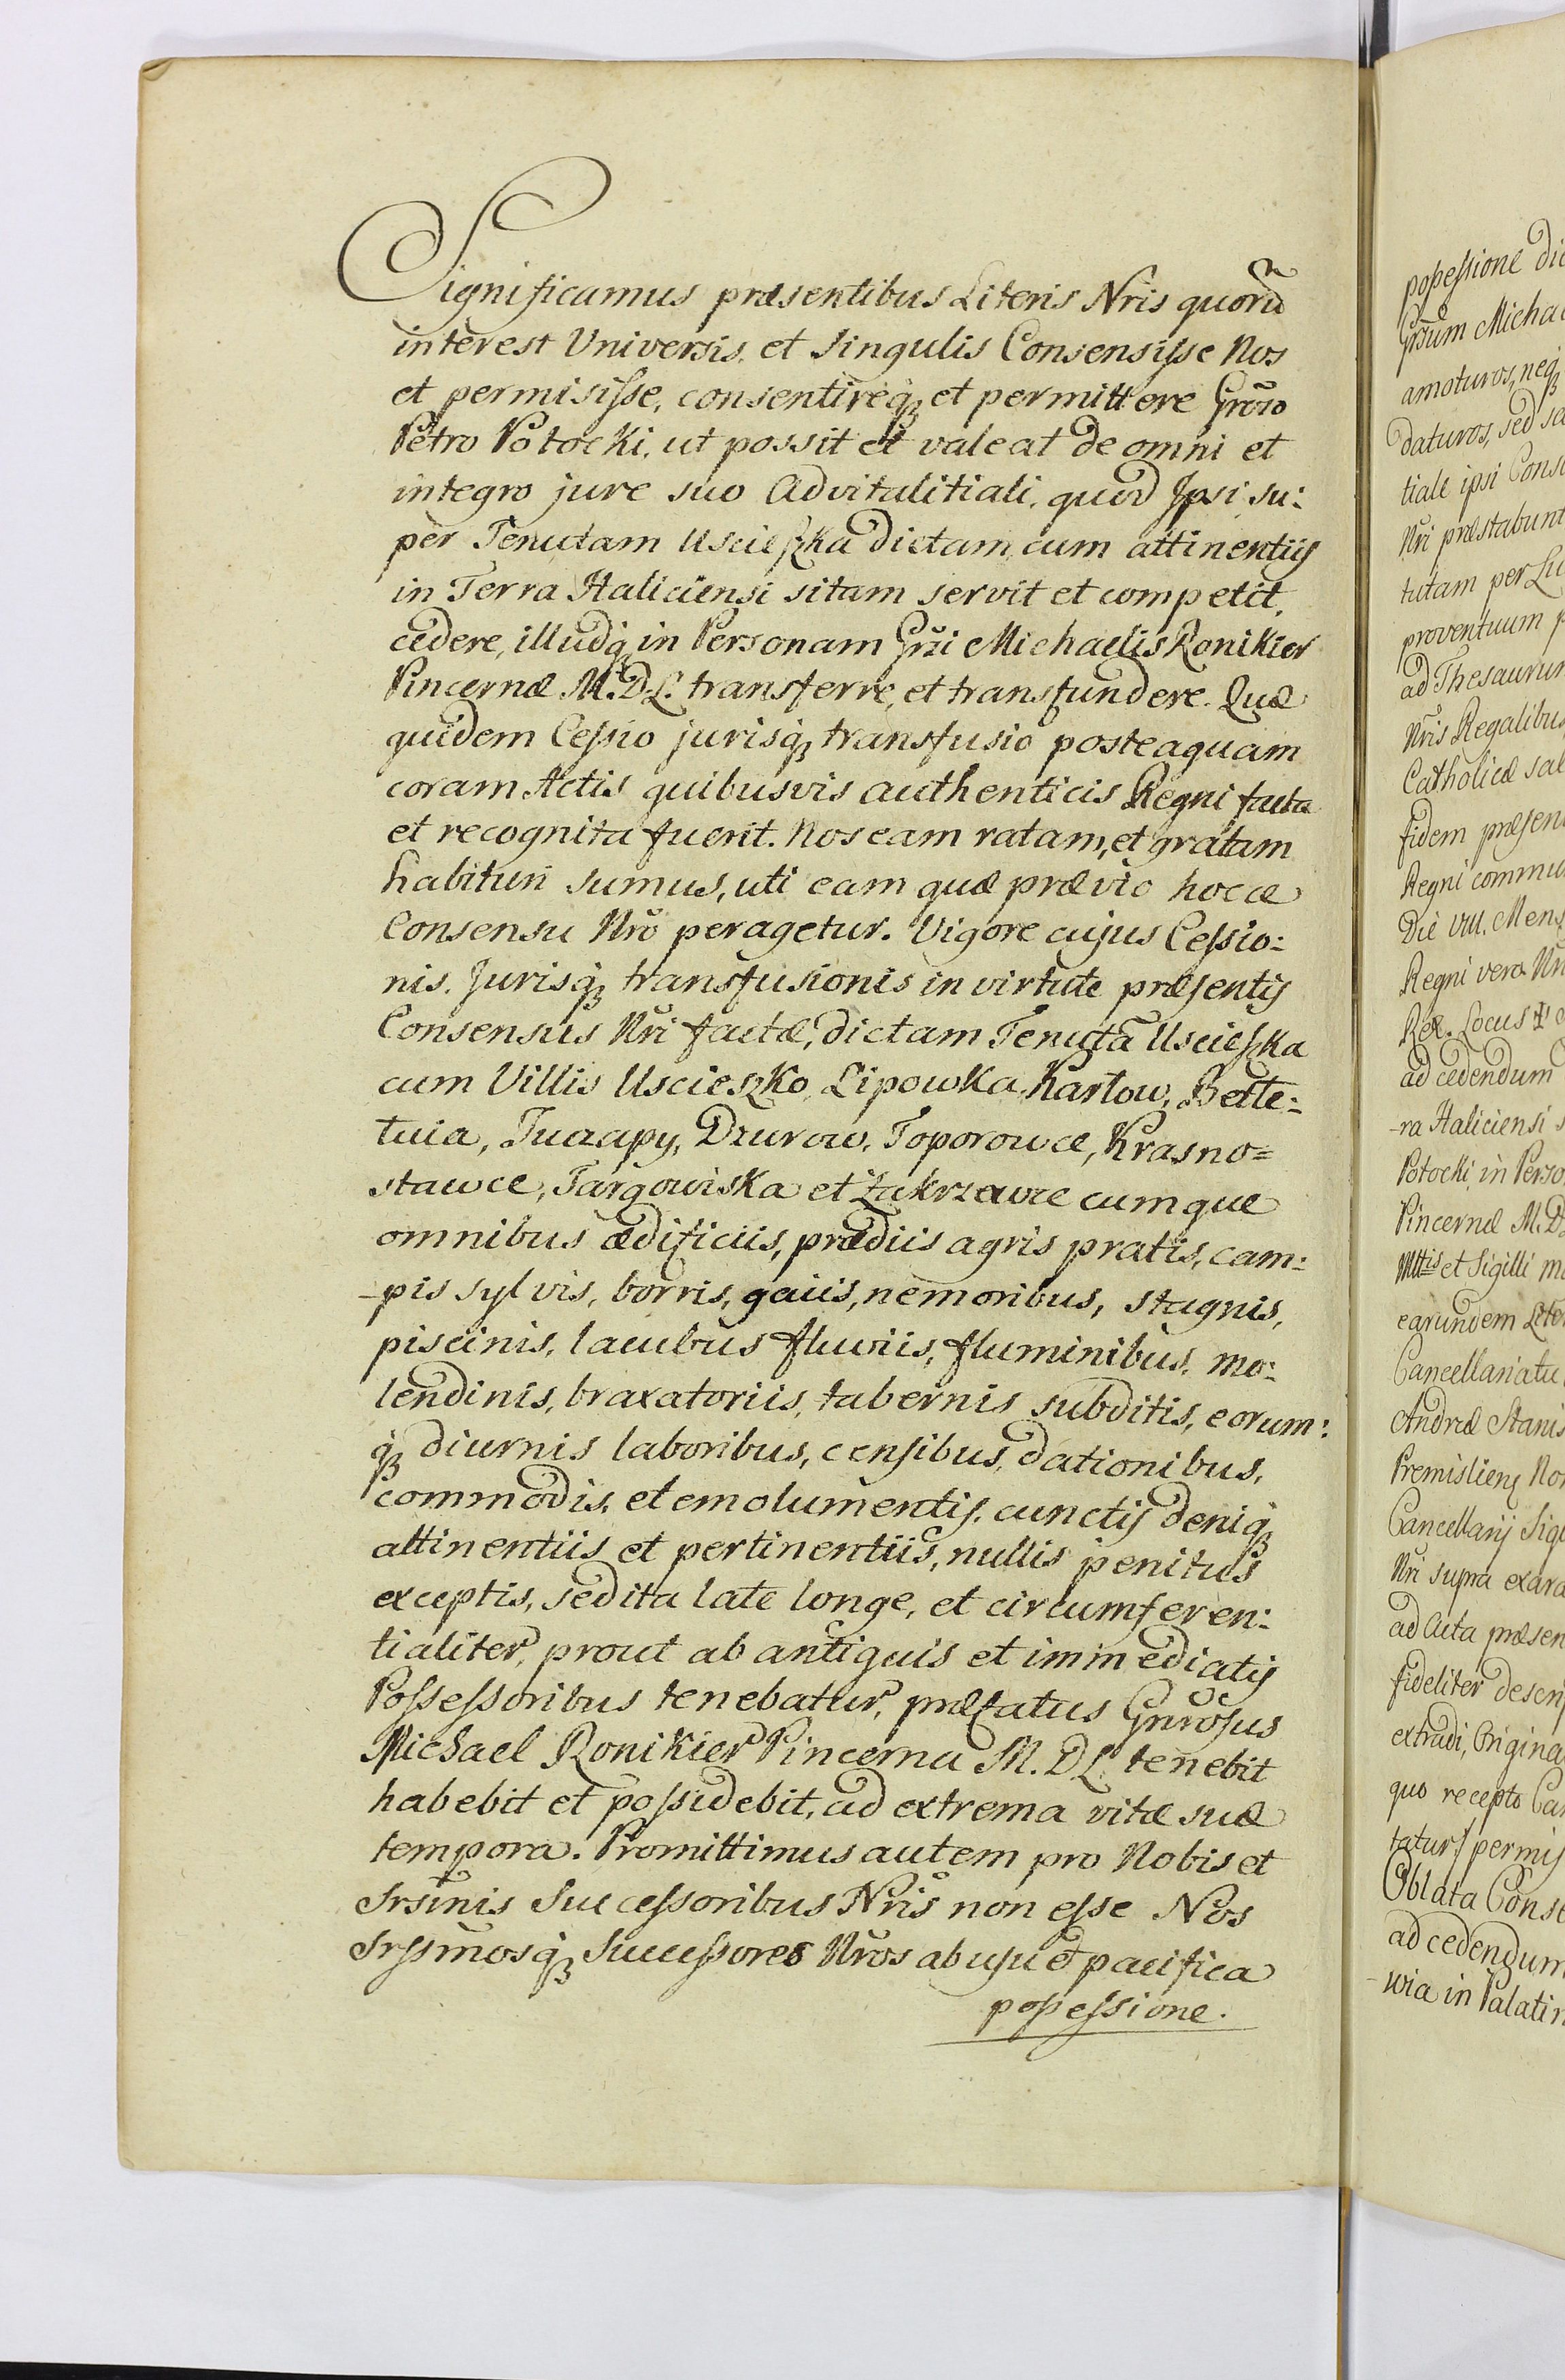 Significamus præsentibus Literis Nris quorũ
interest Universis, et Singulis Consensisse Nos
et permisisse, consentireq; et permittere Grõso
Petro Potocki, ut possit et valeat de omni et
integro jure suo Advitalitiali, quod Ipsi su:
per Tenutam Uscieszka dictam, cum attinentijs
in Terra Haliciensi sitam servit et competit,
cedere, illudq; in Personam Grsi Michaelis Ronikier
Pincernæ M.D.L. transferre, et transfundere. Quæ
quidem Cessio jurisq; transfusio posteaquam
coram Actis quibusvis authenticis Regni facta
et recognita fuerit. Nos eam ratam, et gratam
habituri sumus, uti eam quæ prævio hocce
Consensu Nrõ peragetur. Vigore cujus Cessio:
nis, Jurisq; transfusionis in virtute præsentis
Consensus Nri factæ, dictam Tenutã Uscieszka
cum Villis Uscieszko, Lipowka, Karłow, Bełłe:
tuia, Tuczapy, Dzurow, Toporowce, Krasno=
stawce, Targowiska et Zakrzewce cumque
omnibus ædificiis, prædiis agris pratis, cam:
-pis sylvis, borris, gaiis, nemoribus, stagnis,
piscinis, lacubus fluviis, fluminibus, mo:
lendinis, braxatoriis, tabernis subditis, eorum:
q; diurnis laboribus, censibus, dationibus,
commodis, et emolumentis, cunctis deniq;
attinentiis et pertinentiis, nullis penitus
exceptis, sed ita late longe, et circumferen:
tialiter, prout ab antiquis et immediatis
Possessoribus tenebatur, præfatus Gnrõsus
Michael Ronikier Pincerna M.D.L. tenebit
habebit et possidebit, ad extrema vitæ suæ
tempora. Promittimus autem pro Nobis et
Srsmis Successoribus Nris non esse Nos
Srssmosq; Successores Nros ab usu et pacifica
possessione.
possessione
Grsum
amoturos, neq;
daturos, sed
tiale ipsi
Nri præstabunt
tutam per
proventuum
ad
Nris Regalibus
Catholicæ
fidem
Regni
Die VIII. Mens
Regni vero
Rex. Locus
ad cedendum
-ra Haliciensi
Potocki in
Pincernæ M.D.
Mttis et Sigilli
earundem
Cancellariatu
Andreæ
Premisliens
Cancellarij
Nri supra
ad Acta
fideliter
extradi,
quo recepto
tatur
Oblata
ad cedendum
-wia in